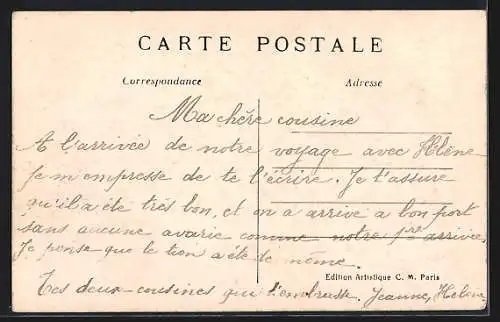 CARTE POSTALE
Correspondance
Adresse
Ma chère cousine
A l'arrivée de notre voyage avec Hlène
je m'empresse de te l'écrire. Je t'assure
qu'il a été très bon, et on a arrivé a bon port
sans aucune avarie comme notre 1re arrivée,
Je pense que le tien a été de même.
Edition Artistique C. M. Paris
Tes deux cousines qui t'embrasse. Jeanne, Helene